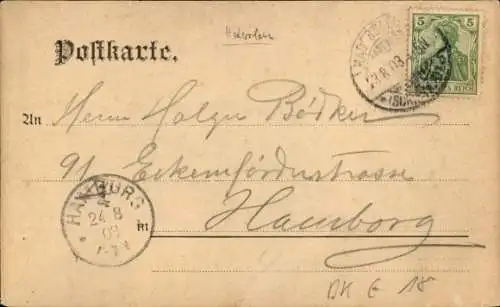 Postkarte.
5
5
REICH
An Herrn Holger Bödker
91 Eckernfördestrasse
in Hamborg
HAMBURG
24 8
03
DK E 18